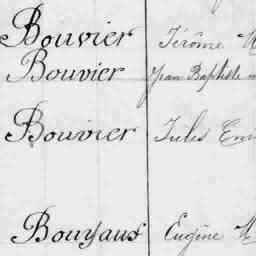 Bouvier Jérôme
Bouvier Jean Baptiste
Bouvier Jules
Bouyaux Eugène